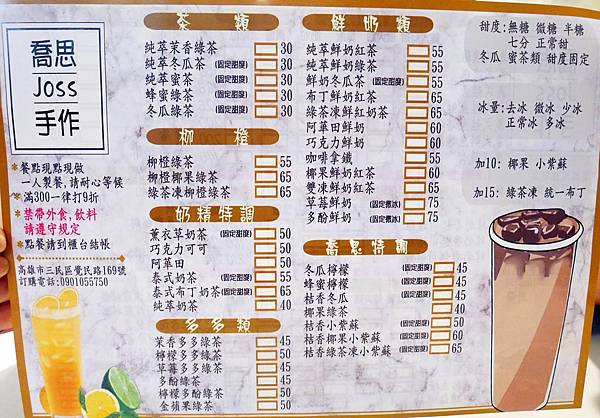 喬思
Joss
手作
*餐點現點現做
一人製餐,請耐心等候
*滿300一律打9折
*禁帶外食,飲料
請遵守規定
*點餐請到櫃台結帳
高雄市三民區覺民路169號
訂購電話:0901055750
茶類
純萃茉香綠茶 30
純萃冬瓜茶 (固定甜度) 30
純萃蜜茶 (固定甜度) 30
蜂蜜綠茶 (固定甜度) 30
冬瓜綠茶 (固定甜度) 30
柳橙
柳橙綠茶 55
柳橙椰果綠茶 65
綠茶凍柳橙綠茶 65
奶精特調
薰衣草奶茶 (固定甜度) 50
巧克力可可 50
阿華田 50
泰式奶茶 (固定甜度) 55
泰式布丁奶茶 (固定甜度) 65
純萃奶茶 40
多多類
茉香多多綠茶 45
檸檬多多綠茶 50
草莓多多綠茶 45
多酚綠茶 45
檸檬多酚綠茶 50
金蘋果綠茶 50
鮮奶類
純萃鮮奶紅茶 55
純萃鮮奶綠茶 55
鮮奶冬瓜茶 (固定甜度) 55
布丁鮮奶紅茶 65
綠茶凍鮮奶紅茶 65
阿華田鮮奶 60
巧克力鮮奶 60
咖啡拿鐵 55
椰果鮮奶紅茶 65
雙凍鮮奶紅茶 65
草莓鮮奶 (固定微冰) 75
多酚鮮奶 (固定微冰) 75
喬思特調
冬瓜檸檬 (固定甜度) 45
蜂蜜檸檬 (固定甜度) 45
桔香冬瓜 (固定甜度) 45
椰果綠茶 40
桔香小紫蘇 (固定甜度) 50
桔香椰果小紫蘇 (固定甜度) 60
桔香綠茶凍小紫蘇 (固定甜度) 65
甜度:無糖 微糖 半糖
七分 正常甜
冬瓜 蜜茶類 甜度固定
冰量:去冰 微冰 少冰
正常冰 多冰
加10: 椰果 小紫蘇
加15: 綠茶凍 統一布丁